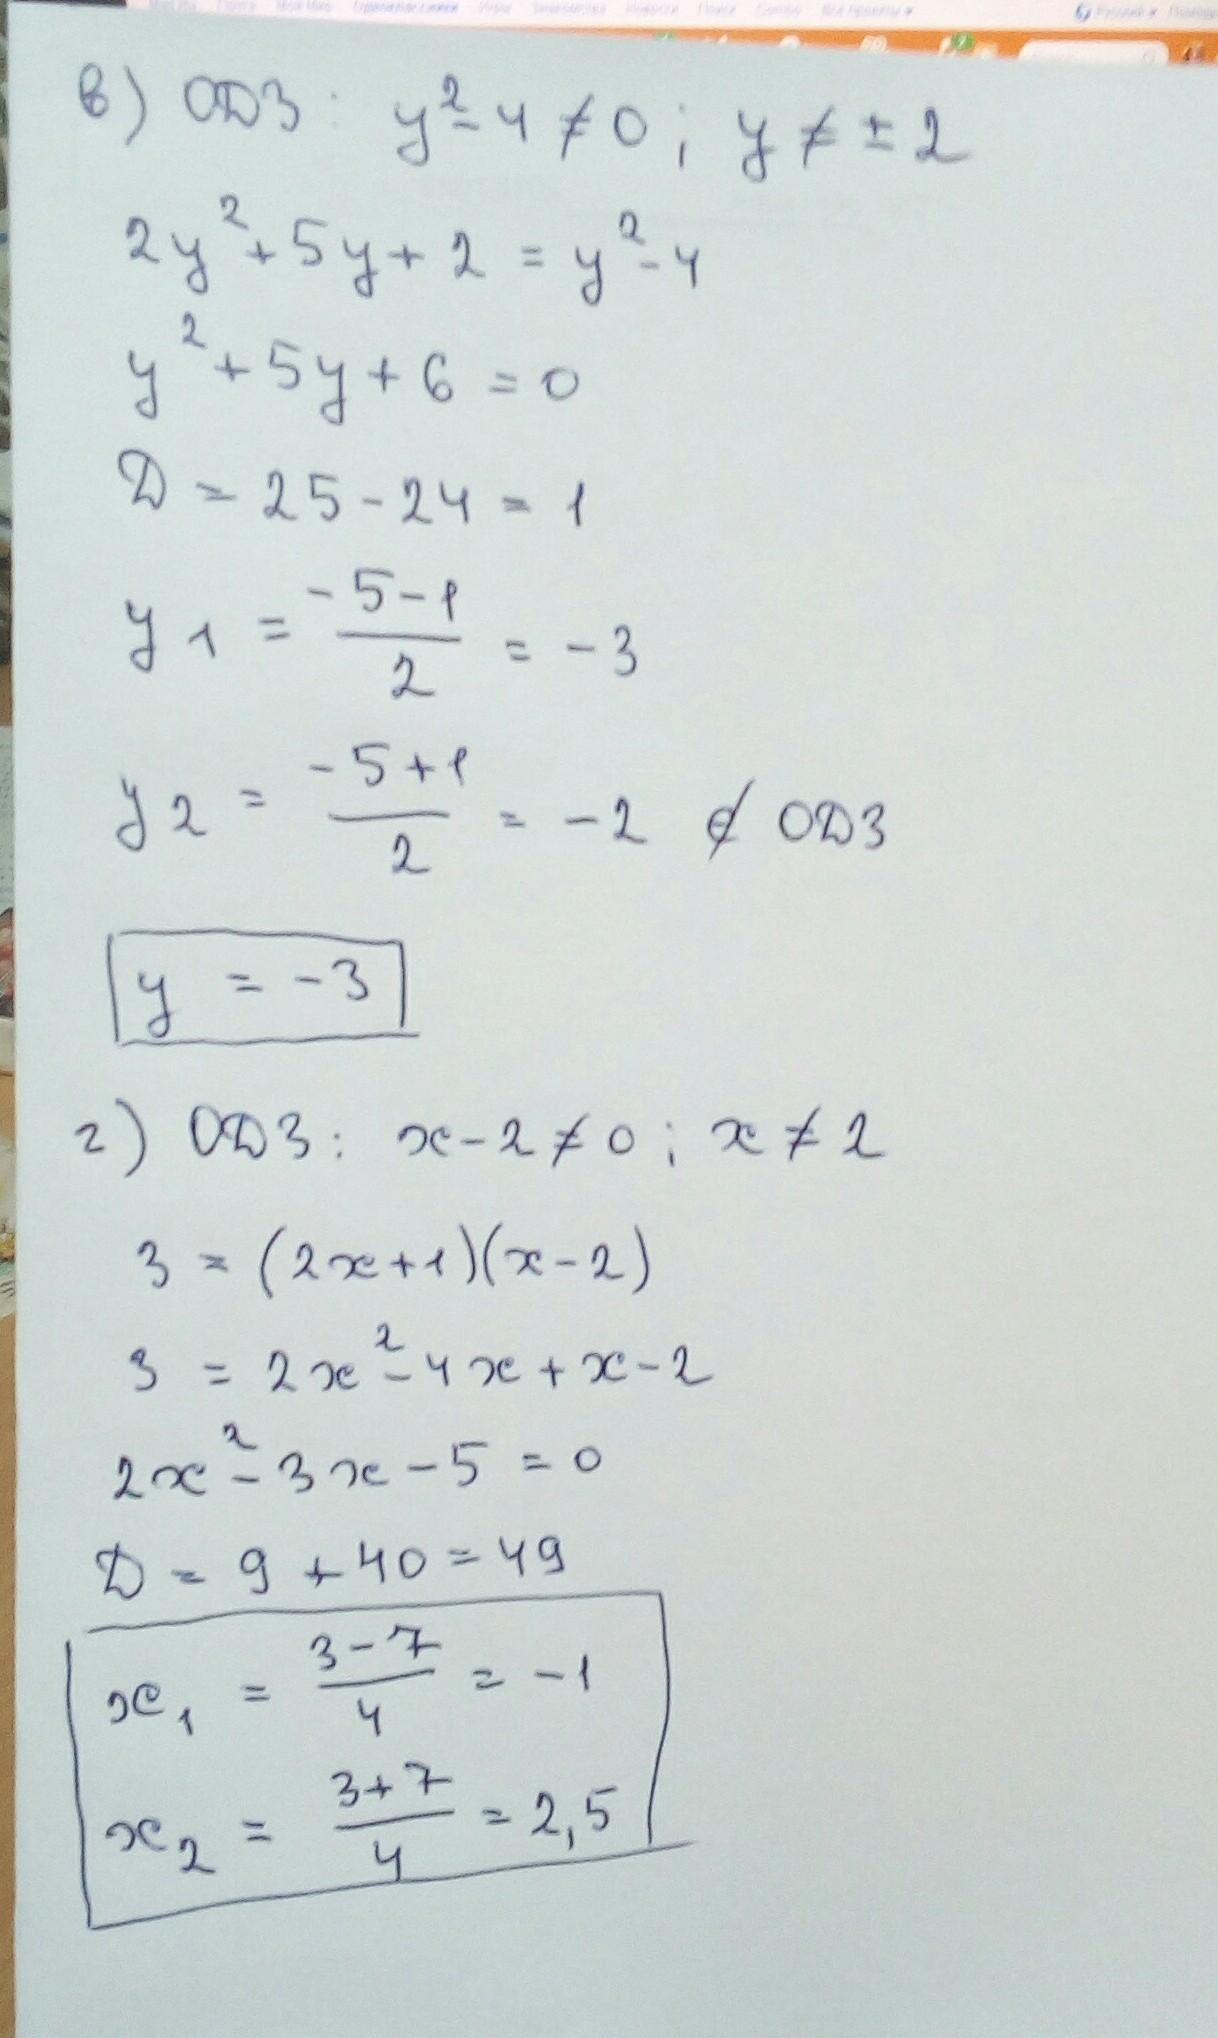 в) ОДЗ: y²-4≠0; y≠±2
2y²+5y+2=y²-4
y²+5y+6=0
D=25-24=1
y₁=(-5-1)/2=-3
y₂=(-5+1)/2=-2 ∉ ОДЗ
y=-3
г) ОДЗ: x-2≠0; x≠2
3=(2x+1)(x-2)
3=2x²-4x+x-2
2x²-3x-5=0
D=9+40=49
x₁=(3-7)/4=-1
x₂=(3+7)/4=2,5